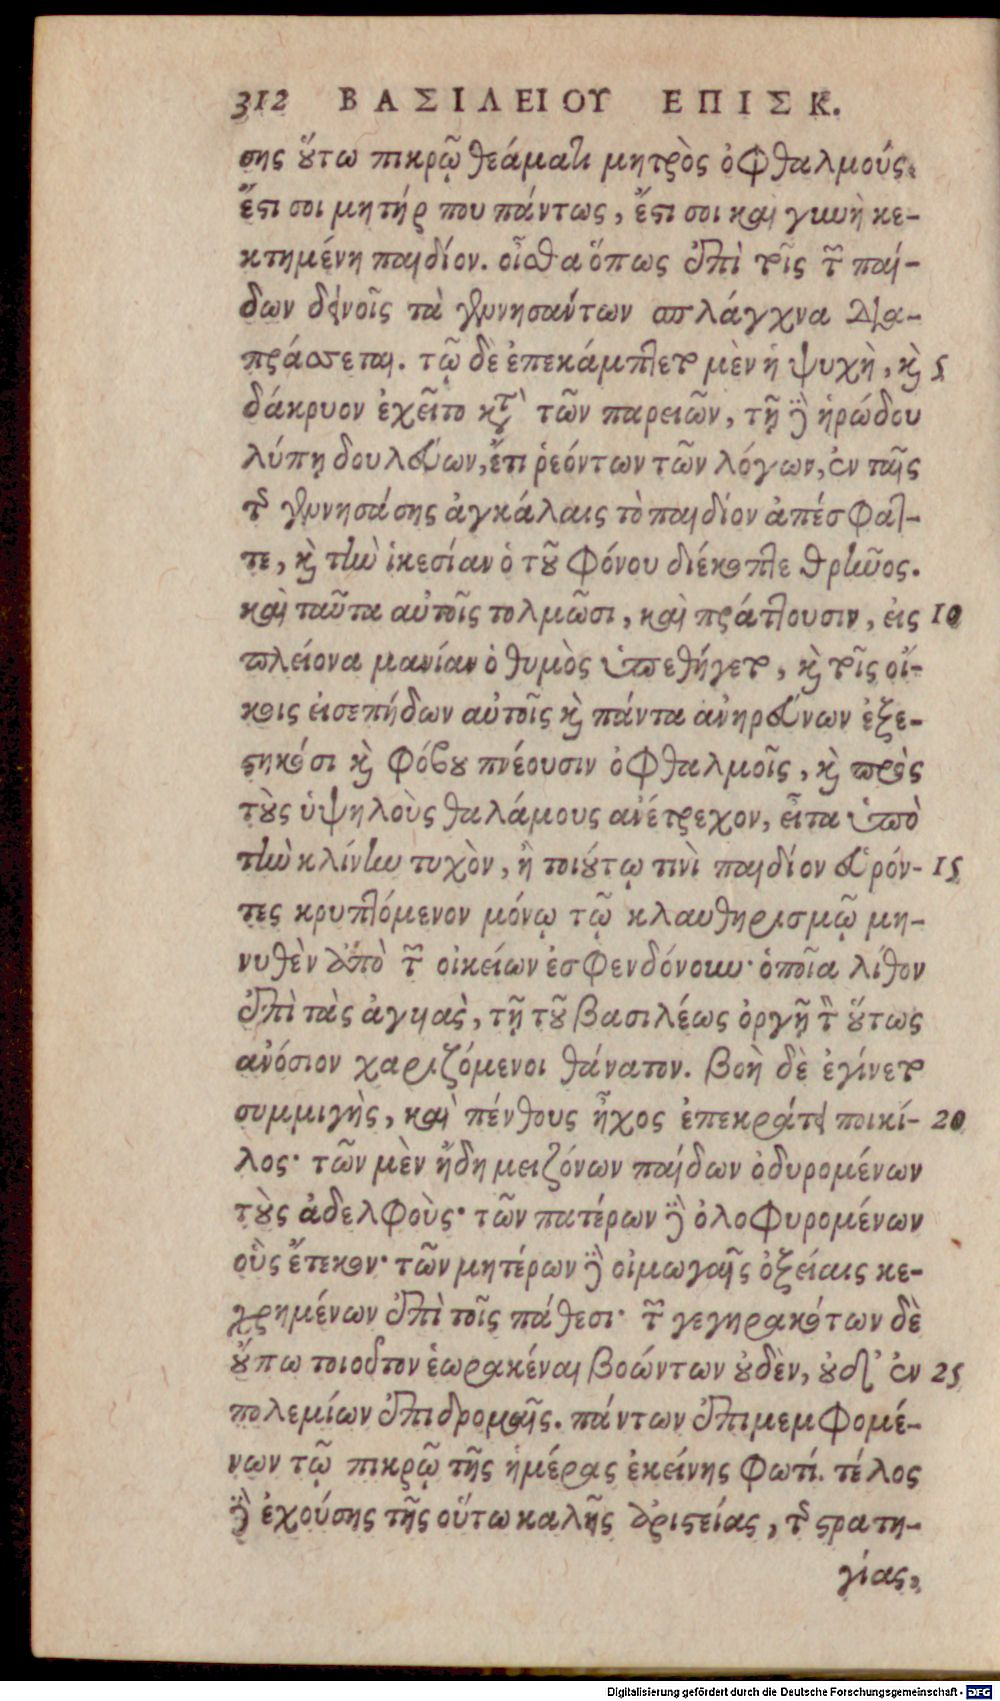 312 ΒΑΣΙΛΕΙΟΥ ΕΠΙΣΚ.
σης ȣ̔́τω πικρῷ θεάματι μητρὸς ὀφθαλμούς.
ἔϛι σοι μητήρ που πάντως, ἔϛι σοι καὶ γυνὴ κε-
κτημένη παιδίον. οἶσθα ὅπως ἐπὶ τοῖς τῶν παί-
δων δεινοῖς τὰ γεννησάντων σπλάγχνα δια-
πράσσεται. τῷ δὲ ἐπεκάμπτετο μὲν ἡ ψυχὴ, καὶ 5
δάκρυον ἐχεῖτο κατὰ τῶν παρειῶν, τῇ δὲ ἡρώδου
λύπῃ δουλεύων, ἔτι ῥεόντων τῶν λόγων, ἐν ταῖς
τῆς γεννησάσης ἀγκάλαις τὸ παιδίον ἀπέσφατ-
τε, καὶ τὴν ἱκεσίαν ὁ τȣ͂ φόνου διέκοπτε θρῆνος.
καὶ ταῦτα αὐτοῖς τολμῶσι, καὶ πράττουσιν, εἰς 10
πλείονα μανίαν ὁ θυμὸς ὑπεθήγετο, καὶ τοῖς οἴ-
κοις εἰσεπήδων αὐτοῖς καὶ πάντα ἀνηρεύνων ἐξε-
ϛηκόσι καὶ φόβȣ πνέουσιν ὀφθαλμοῖς, καὶ πρὸς
τȣ̀ς ὑψηλοὺς θαλάμους ἀνέτρεχον, εἶτα ὑπὸ
τὴν κλίνην τυχὸν, ἢ τοιȣ́τῳ τινὶ παιδίον εὑρόν- 15
τες κρυπτόμενον μόνῳ τῷ κλαυθηρισμῷ μη-
νυθὲν ἀπὸ τῶν οἰκείων ἐσφενδόνουν· ὁποῖα λίθον
ἐπὶ τὰς ἀγυιὰς, τῇ τȣ͂ βασιλέως ὀργῇ τὸν ȣ̔́τως
ἀνόσιον χαριζόμενοι θάνατον. βοὴ δὲ ἐγίνετο
συμμιγὴς, καὶ πένθους ἦχος ἐπεκράτει ποικί- 20
λος· τῶν μὲν ἤδη μειζόνων παίδων ὀδυρομένων
τȣ̀ς ἀδελφοὺς· τῶν πατέρων δὲ ὀλοφυρομένων
οὓς ἔτεκον· τῶν μητέρων δὲ οἰμωγαῖς ὀξείαις κε-
χρημένων ἐπὶ τοῖς πάθεσι· τῶν γεγηρακότων δὲ
ȣ̓́πω τοιοῦτον ἑωρακέναι βοώντων ȣ̓δὲν, ȣ̓δ' ἐν 25
πολεμίων ἐπιδρομαῖς. πάντων ἐπιμεμφομέ-
νων τῷ πικρῷ τῆς ἡμέρας ἐκείνης φωτί. τέλος
δὲ ἐχούσης τῆς οὕτω καλῆς ἀριϛείας, τῆς ϛρατη-
γίας,
Digitalisierung gefördert durch die Deutsche Forschungsgemeinschaft - DFG